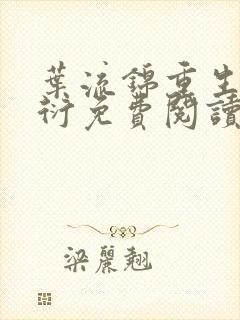 葉流錦重生
衍免費閱讀
梁麗翹